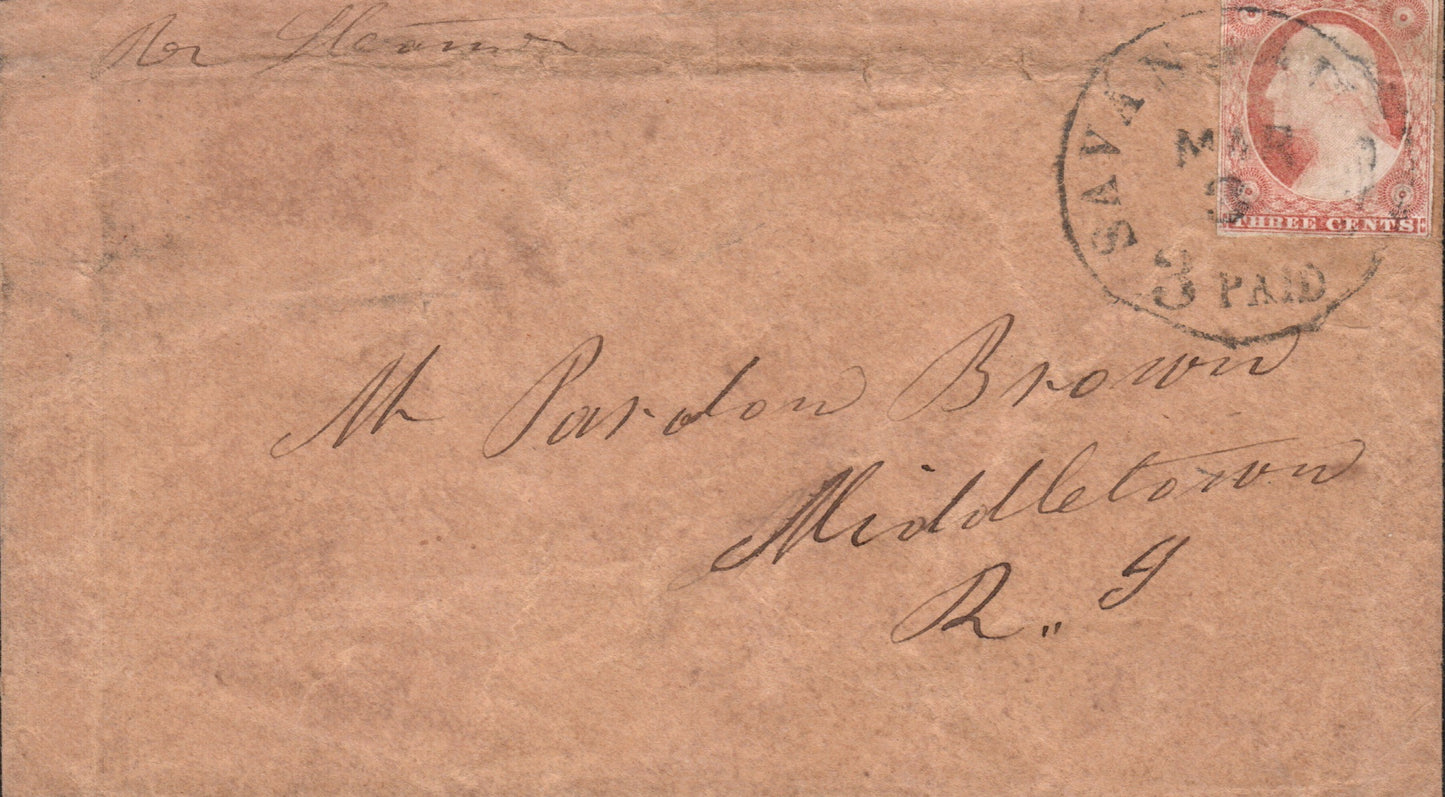 Per Steamer
SAVANNAH
MAR
3
3 PAID
THREE CENTS
Mr Pardon Brown
Middletown
R. I